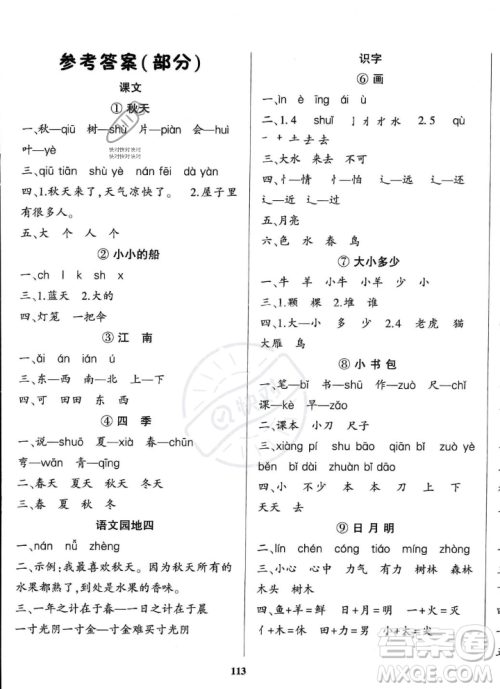 参考答案(部分)
课文
①秋天
一、秋—qiū 树—shù 片—piàn 会—huì
叶—yè
三、qiū tiān shù yè nán fēi dà yàn
四、1.秋天来了,天气凉快了。2.屋子里
有很多人。
五、大 个 人 个
②小小的船
一、ch l k sh x
三、1.蓝天 2.大的
四、灯笼 一把伞
③江 南
一、ǎi án án ián ú
三、东—西 南—北 上—下
四、可 田田 东 西
④四 季
一、说—shuō 夏—xià 春—chūn
弯—wān 青—qīng
二、春天 夏天 秋天 冬天
三、春 夏 秋 冬
语文园地四
一、nán nǚ zhèng
二、示例:我最喜欢秋天。因为秋天有所有的
水果都熟了,到处是水果的香味。
三、一年之计在于春—一日之计在于晨
一寸光阴一寸金—寸金难买寸光阴
识字
⑥画
一、ìn è īng ái ù
二、1.4 2.5
三、大水 来 去
五、月亮
六、色 水 春 鸟
⑦大小多少
一、牛 羊 小 少 鸟
三、1.颗 棵 2.条
四、1.大—小 多—少 2.4 老虎 猫
大雁 鸟
⑧小书包
一、笔—bǐ 书—shū 作—zuò 尺—chǐ
课—kè 早—zǎo
二、课本 小刀 尺子
三、xiàng pí shu bāo qiān bǐ zuò yè
běn bǐ dài zuò yè běn zhuàn bǐ dāo
四、小 不 本 本 刀 刀 尺
去 去
⑨日月明
二、lín chén cóng tiáo zhòng
三、小心 心中 力气 有力 树林 森林
木头 树木
四、鱼+羊=鲜
亻+木=休 田+力=男 小+大=尖
113